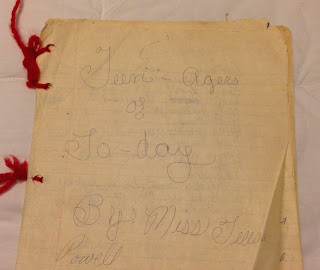 Teen-agers
of
To-day
By Miss
Powell